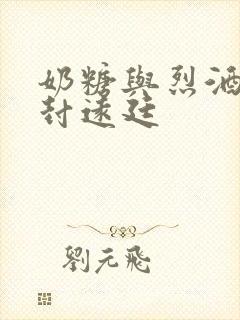 奶糖與烈酒
封遠廷
劉元飛